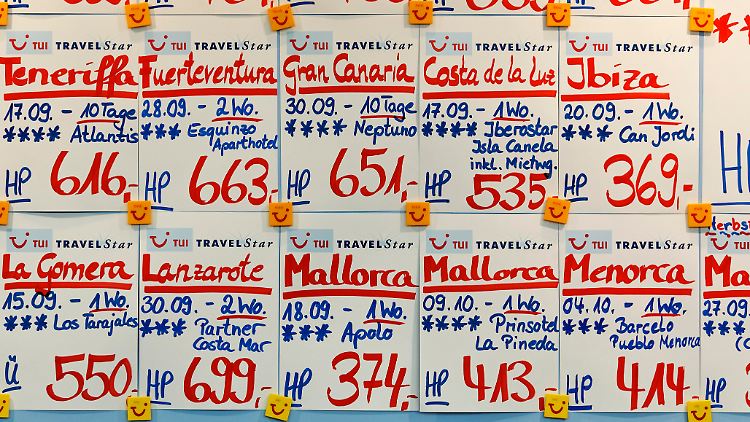 TUI TRAVELStar
Teneriffa
17.09. - 10 Tage
**** Atlantis
HP 616,-
TUI TRAVELStar
Fuerteventura
28.09. - 2 Wo.
*** Esquinzo
Aparthotel
HP 663,-
TUI TRAVELStar
Gran Canaria
30.09. - 10 Tage
*** Neptuno
HP 651,-
TUI TRAVELStar
Costa de la Luz
17.09. - 1 Wo.
**** Iberostar
Isla Canela
inkl. Mietwg.
HP 535
TUI TRAVELStar
Ibiza
20.09. - 1 Wo.
*** Can Jordi
HP 369,-
H
TUI TRAVELStar
La Gomera
15.09. - 1 Wo.
*** Los Tarajales
Ü 550,-
TUI TRAVELStar
Lanzarote
30.09. - 2 Wo.
*** Partner
Costa Mar
HP 699,-
TUI TRAVELStar
Mallorca
18.09. - 1 Wo.
*** Apolo
HP 374,-
TUI TRAVELStar
Mallorca
09.10. - 1 Wo.
**** Prinsotel
La Pineda
HP 413,-
TUI TRAVELStar
Menorca
04.10. - 1 Wo.
*** Barcelo
Pueblo Menorca
HP 414,-
Herbs
TUI TRA
Ma
27.09.
***
HP